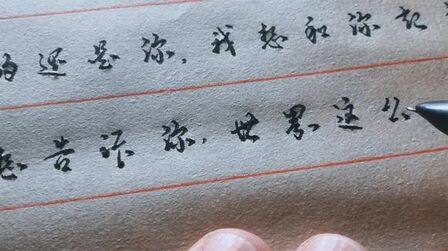 还是你，我想和你
想告诉你，世界这